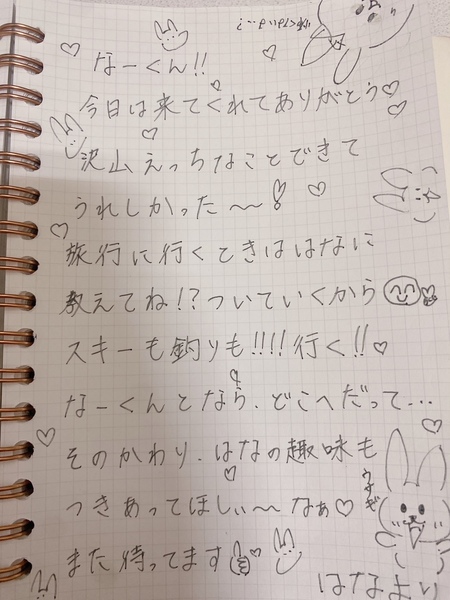 なーくん!!
今日は来てくれてありがとう♡
沢山えっちなことできて
うれしかった〜!
旅行に行くときははなに
教えてね!?ついていくから
スキーも釣りも!!!!行く!!♡
なーくんとなら、どこへだって...
そのかわり、はなの趣味も
つきあってほしぃ〜なぁ♡
うさぎ
また待ってます
はなより